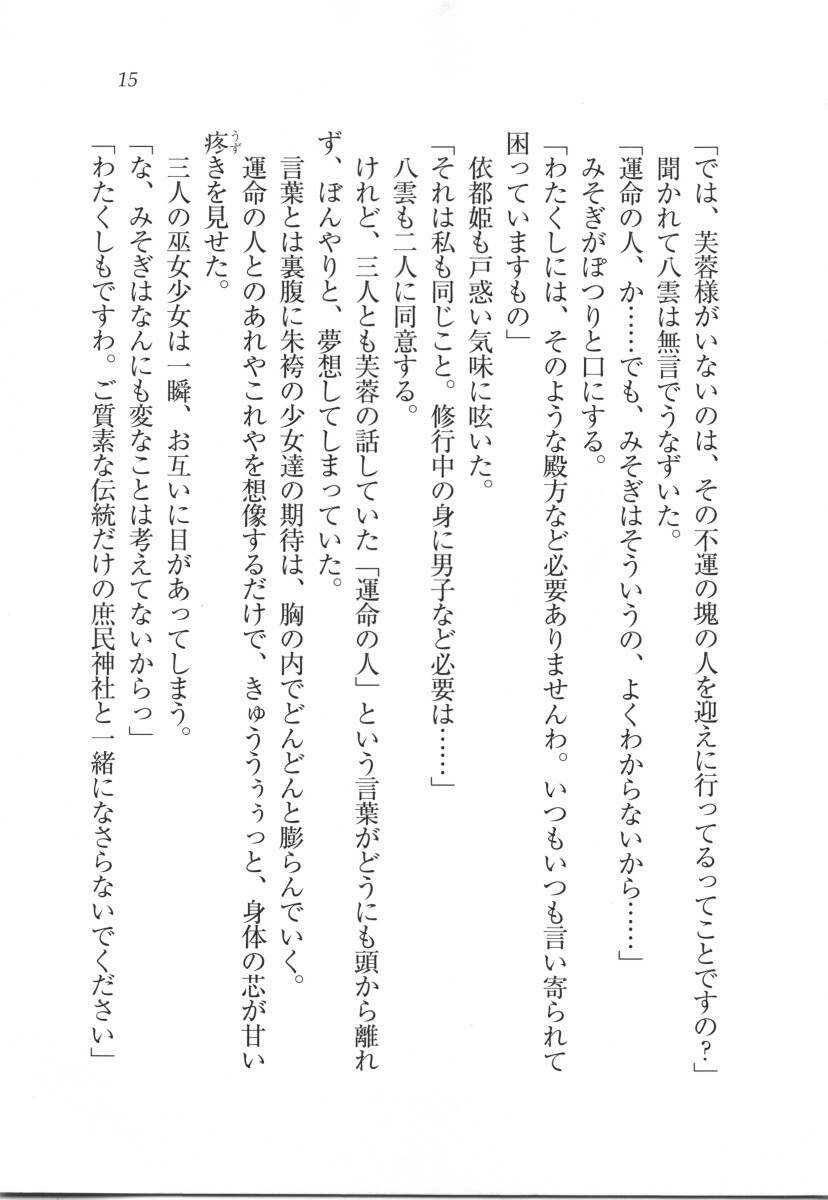 15
「では、芙蓉様がいないのは、その不運の塊の人を迎えに行ってるってことですの？」
聞かれて八雲は無言でうなずいた。
「運命の人、か……でも、みそぎはそういうの、よくわからないから……」
みそぎがぽつりと口にする。
「わたくしには、そのような殿方など必要ありませんわ。いつもいつも言い寄られて
困っていますもの」
依都姫も戸惑い気味に呟いた。
「それは私も同じこと。修行中の身に男子など必要は……」
八雲も二人に同意する。
けれど、三人とも芙蓉の話していた「運命の人」という言葉がどうにも頭から離れ
ず、ぼんやりと、夢想してしまっていた。
言葉とは裏腹に朱袴の少女達の期待は、胸の内でどんどんと膨らんでいく。
運命の人とのあれやこれやを想像するだけで、きゅううぅぅっと、身体の芯が甘い
疼きを見せた。
うず
三人の巫女少女は一瞬、お互いに目があってしまう。
「な、みそぎはなんにも変なことは考えてないからっ」
「わたくしもですわ。ご質素な伝統だけの庶民神社と一緒になさらないでください」